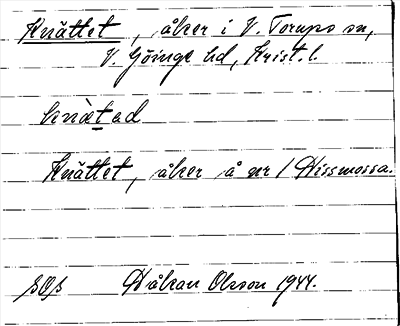 Knättet, åker i V. Torups sn,
V. Göinge hd, Krist. l.
knàtad
Knättet, åker å nr 1 Hissmossa.
Håkan Olsson 1944.